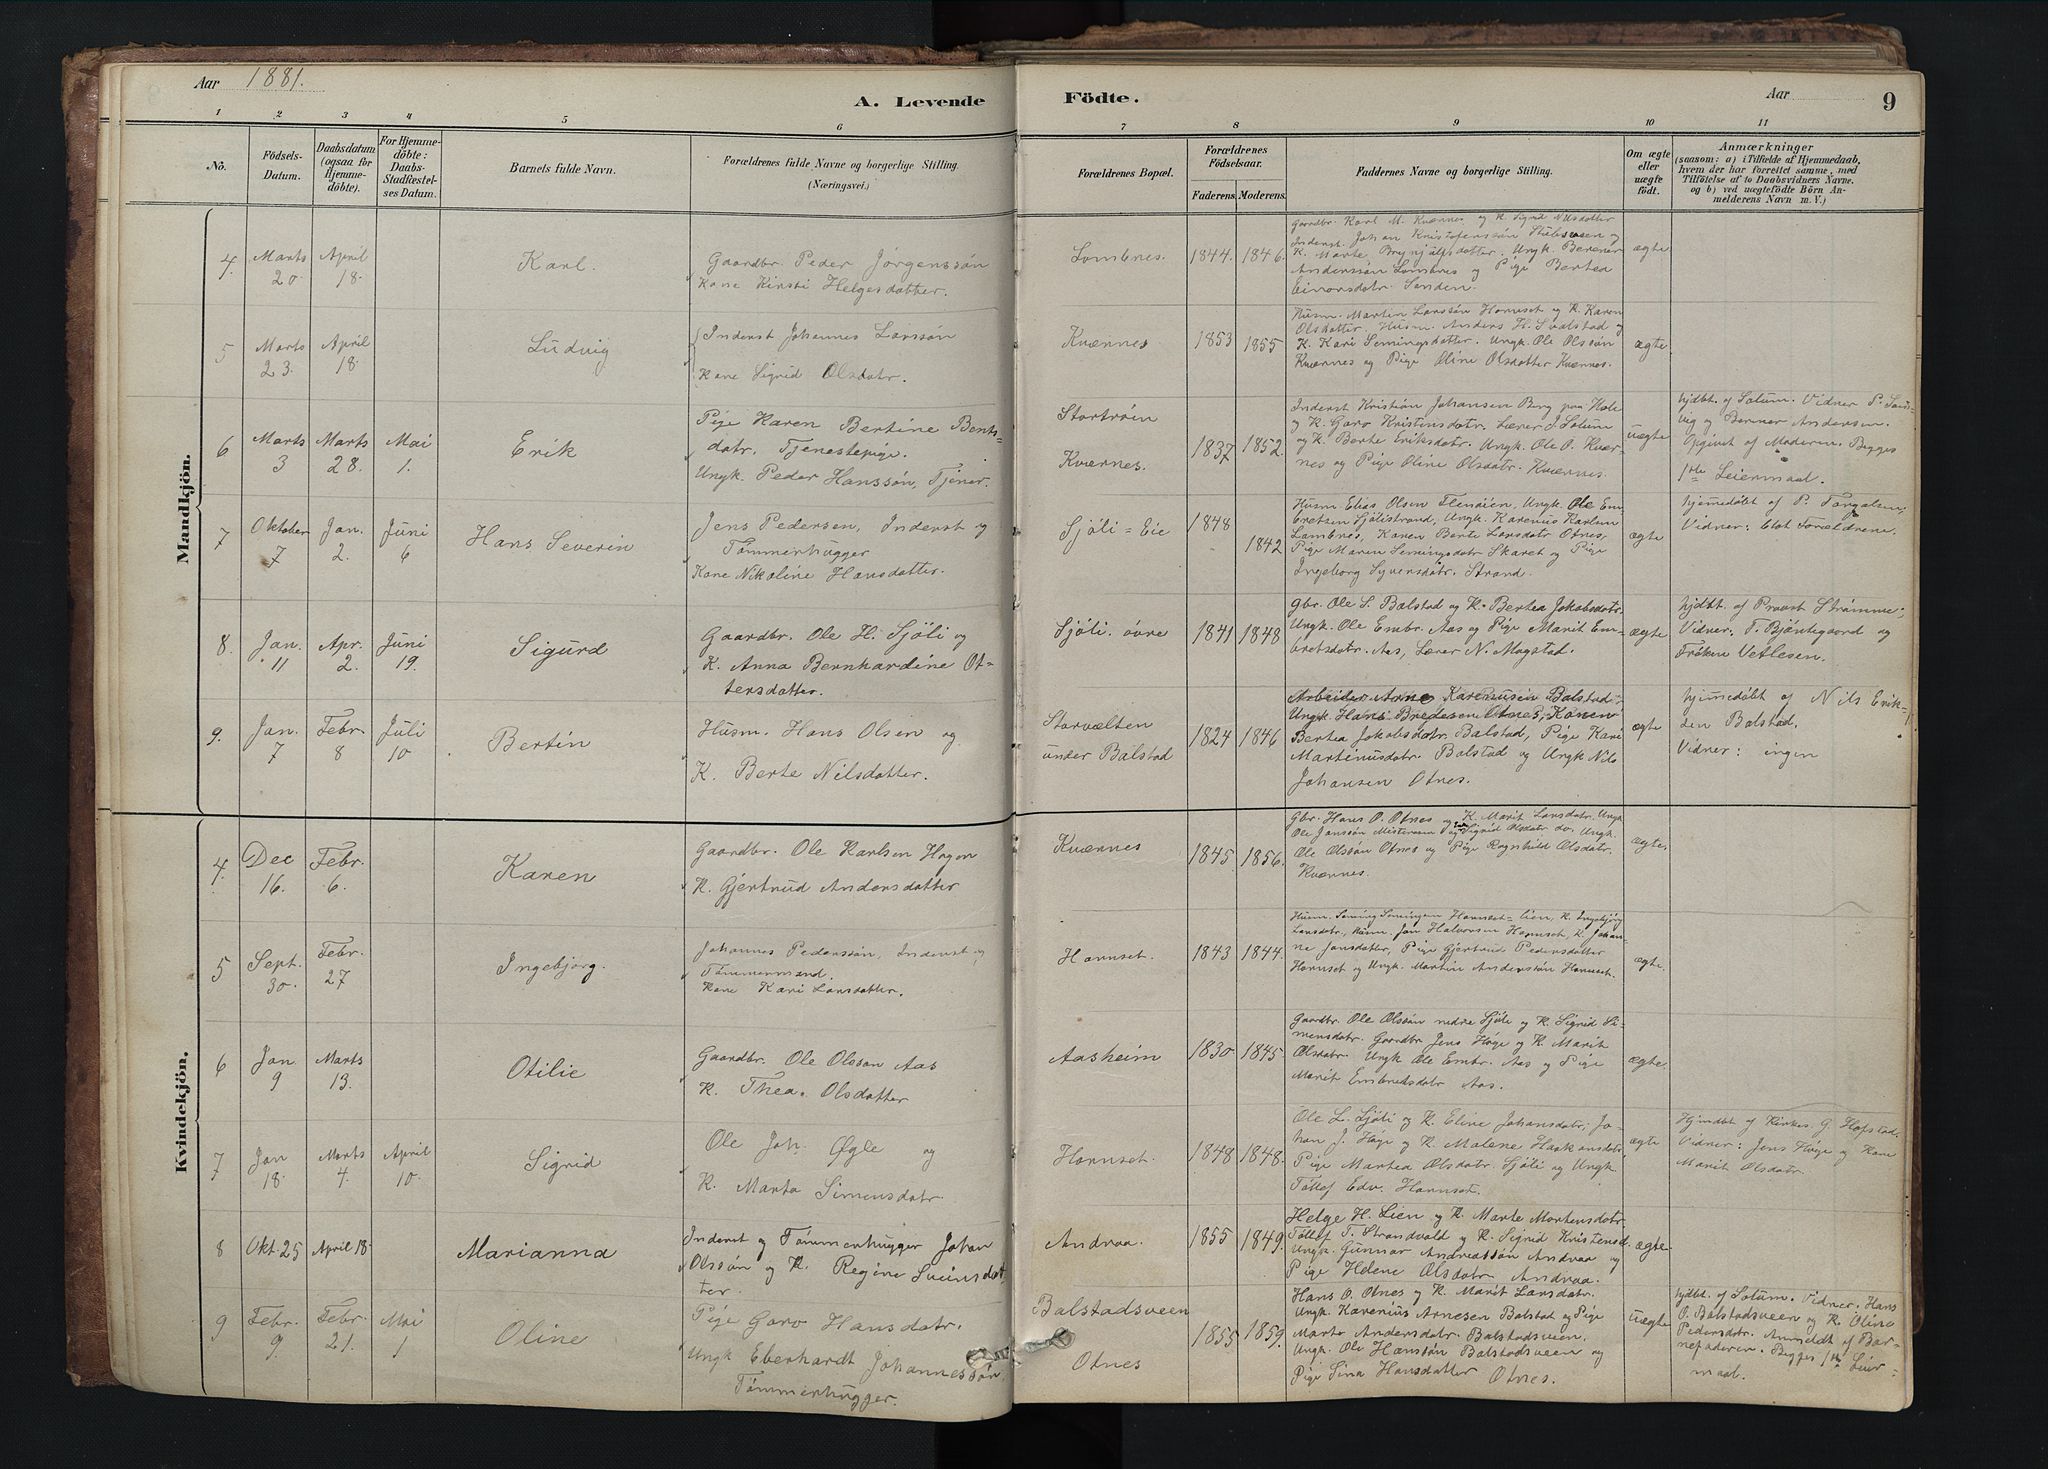 Aar 1881.
A. Levende Födte.
Aar
9
1 2 3 4 5 6 7 8 9 10 11
No.
Födsels-Datum.
Daabsdatum (ogsaa for Hjemme-döbte).
For Hjemme-döbte: Daabs-Stadfæstel-ses Datum.
Barnets fulde Navn.
Forældrenes fulde Navne og borgerlige Stilling.
(Næringsvei.)
Forældrenes Bopæl.
Forældrenes Födselsaar.
Faderens. Moderens.
Faddernes Navne og borgerlige Stilling.
Om ægte eller uægte födt.
Anmærkninger
(saasom: a) i Tilfælde af Hjemmedaab,
hvem der har forrettet samme, med
Tilföielse af to Daabsvidners Navne.
og b) ved uægtefödte Börn An-
melderens Navn m. V.)
Mandkjön.
4. Marts 20 April 18.
Karl.
Gaardbr. Peder Jörgenssön
Kone Kirsti Helgesdatter.
Lombnes. 1844. 1846.
Gaardbr. Karl M. Kværnes og K. Sigrid Nilsdatter
Inderst. Johan Kristofenssön og
K. Marte Brynjulfsdatter. Ungk. Berener
Anderssön Lombnes og Pige Bertea
Einarsdatr. Sanden.
ægte
5 Marts 23. April 18.
Ludvig
Inderst Johannes Larssön
Kone Sigrid Olsdatr.
Kværnes 1853 1855
Husm. Martin Larssön Hornset og K. Karen
Olsdatter. Husm. Anders H. Svalstad og
K. Kari Semingsdatter. Ungk. Ole Olssön
Kværnes og Pige Oline Olsdatter Kværnes.
ægte.
6 Marts 3 Marts 28. Mai 1.
Erik
Pige Karen Bertine Bents-
datr. Tjenestepige.
Ungk. Peder Hanssön, Tjener.
Stortröen
Kværnes.
1837 1852.
Inderst Kristian Johansen Berg paa
og K. Garo Kristensdatr. Lærer J. Solum
og K. Berte Eriksdatr. Ungk. Ole O. Kvær-
nes og Pige Oline Olsdatr. Kværnes.
uægte
hjdbt. af Solum. Vidner P. Sand-
vig og Berner Andersen.
Opgivet af Moderen. Begges
1ste Leiermaal.
7 Oktober 7 Jan. 2. Juni 6
Hans Severin
Jens Pedersen, Inderst og
Tömmerhugger
Kone Nikoline Hansdatter.
Sjöli=Eie 1848 1842
Husm. Elias Olsen, Ungk. Ole Em-
bretsen Sjölistrand, Ungk. Karenus Karlsen
Lombnes, Konen Berte Larsdatr Otnes,
Pige Maren Semingsdatr Skaret og Pige
Ingeborg Syversdatr. Strand.
ægte
hjemedöbt af P. Torgalsen,
Vidner: Blot Forældrene.
8. Jan. 11 Apr. 2. Juni 19.
Sigurd
Gaardbr. Ole H. Sjöli og
K. Anna Bernhardine Ot-
tersdatter.
Sjöli, övre 1841 1848
gbr. Ole S. Balstad og K. Bertea Jakobsdatr.
Ungk. Ole Embr. Aas og Pige Marit Em-
bretsdatr. Aas, Lærer N. Mogstad.
ægte
hjdbt. af Provst Strömme;
Vidner: T. Bjöntegaard og
Fröken Vetlesen.
9. Jan. 7 Febr. 8 Juli 10
Bertin
Husm. Hans Olsen og
K. Berte Nilsdatter.
Storvælten
under Balstad
1824 1846
Arbeider Arne Karenusen Balstad,
Ungk. Hans Bredesen Otnes, Konen
Bertea Jakobsdatr. Balstad, Pige Kari
Martinusdatr. Balstad og Ungk Nils
Johansen Otnes.
ægte
hjemedöbt af Nils Erik-
sen Balstad.
Vidner: ingen
Kvindekjön.
4. Dec 16. Febr. 6.
Karen
Gaardbr. Ole Karlsen Hagen
K. Gjertrud Andersdatter
Kværnes 1845 1856.
Gbr. Hans O. Otnes og K. Marit Larsdatr. Ungk
Ole Janssön og Sigrid Olsdatr. Ungk.
Ole Olssön Otnes og Pige Ragnhild Olsdatr.
Kværnes.
ægte.
5 Sept. 30. Febr. 27
Ingebjörg.
Johannes Pederssön, Inderst og
Tömmermand.
Kone Kari Larsdatter.
Hornset. 1843 1844.
Husm. Seming Semingsen Hornset-lien, K. Ingebjörg
Larsdatr., Husm. Jon Halvorsen Hornset, K. Johan-
ne Jonsdatter, Pige Gjertrud Pedersdatter
Hornset og Ungk. Martin Anderssön Hornset.
ægte.
6 Jan 9 Marts 13.
Otilie
Gaardbr. Ole Olssön Aas
K. Thea. Olsdatter
Aasheim 1830 1845
Gaardbr. Ole Olssön nedre Sjöli og K. Sigrid Si-
mensdatr. Gaardbr Jens Höge og K. Marit
Olsdatr. Ungk Ole Embr. Aas og Pige
Marit Embretsdatr Aas.
ægte.
7 Jan 18. Marts 4. April 10.
Sigrid
Ole Joh. Øgle og
K. Marta Simensdatr.
Hornset. 1848 1848.
Ole L. Sjöli og K. Eline Johansdatr, Jo-
han J. Höge og K. Malene Haakonsdatr,
Pige Martea Olsdatr. Sjöli og Ungk
Tollef Edv. Hornset.
ægte
Hjemdbt af Kirkes. G. Hofstad.
Vidner: Jens Höge og Kone
Marit Olsdatr.
8 Okt. 25 April 18.
Marianna
Inderst og Tömmerhugger Johan
Olssön og K. Regine Sveinsdat-
ter.
Andraa. 1855 1849.
Helge H. Lien og K. Marte Mortensdatr.
Tollef T. Strandvold og K. Sigrid Kristensd.
Ungk. Gunnar Andreassön Andraa og
Pige Helene Olsdatr Andraa.
ægte
9 Febr. 9 Febr. 21. Mai 1
Oline
Pige Garo Hansdatr.
Ungk Eberhardt Johannessön
Tömmerhugger.
Balstadsveen
Otnes
1855 1859.
Hans O. Otnes og K. Marit Larsdatr.
Ungk. Karenius Arnesen Balstad og Pige
Marte Andersdatr. Balstadsveen.
Ungk. Ole Hanssön Balstadsveen og
Pige Sina Hansdatter Otnes.
uægte
hjdbt. af Solum. Vidner. Hans
O. Balstadsveen og K. Oline
Pedersdatr. Anmeldt af Bar-
nefaderen. Begges 1ste Leier-
maal.